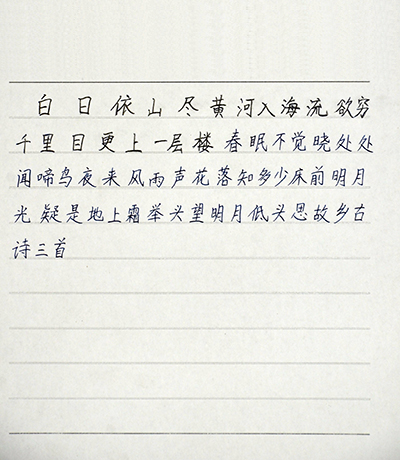 白日依山尽黄河入海流欲穷
千里目更上一层楼春眠不觉晓处处
闻啼鸟夜来风雨声花落知多少床前明月
光疑是地上霜举头望明月低头思故乡古
诗三首